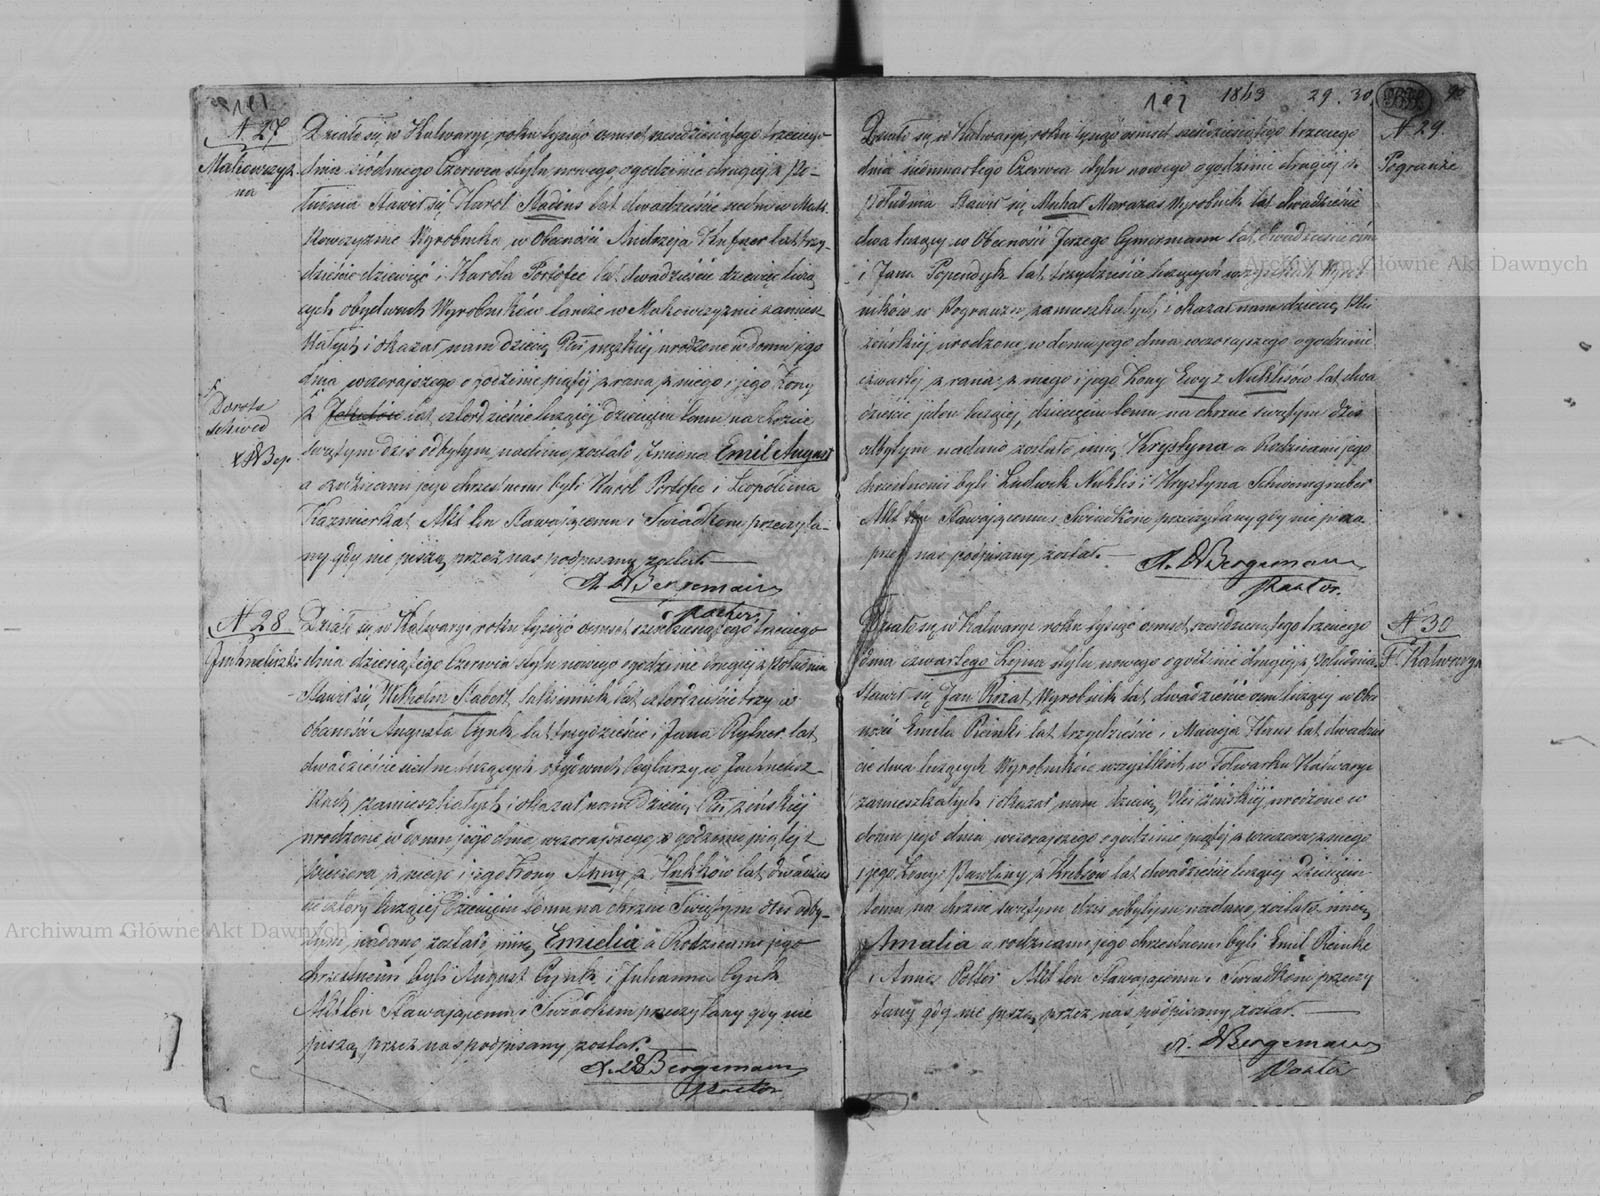 N 27
Makowszyz
na
Działo się w Kalwaryi, roku tysiąc ośmset sześćdziesiątego trzeciego
dnia siódmego Czerwca stylu nowego, o godzinie drugiej z Po-
łudnia Stawił się Karol lat dwadzieście siedm w Mak-
kowszyznie Wyrobnika, w Obecności Andrzeja Kufner lat trzy-
dzieście dziewięć i Karola Portofee lat dwadzieście dziewięć liczą
cych obydwuch Wyrobników także w Makowszyznie zamiesz
kałych i okazał nam dziecię Płci męzkiej urodzone w domu jego
dnia wczorajszego o godzinie piątej z rana z niego i jego Żony
z lat czterdzieście liczącej dziecięciu temu na chrzcie
Dorota
Schwed
świętym dziś odbytym, nadano zostało Imiona Emil August
a rodzicami jego chrzestnemi byli Karol Portofee i Leopoldina
Kazmierkat Akt ten Stawającemu i Świadkom przeczyta-
ny gdy nie piszą, przez nas podpisany został.
Bergemann
Pastor
N 28
Działo się w Kalwaryi roku tysiąc ośmset sześćdziesiątego trzeciego
dnia dziesiątego Czerwca stylu nowego o godzinie drugiej z południa
Stawił się Wilhelm Sadost sukiennik lat czterdzieście trzy w
obecności Augusta Cynk lat trzydzieście i Jana Rytner lat
dwadzieście siedm liczących obydwuch w
kach zamieszkałych i okazał nam Dziecię Płci żeńskiej
urodzone w domu jego dnia wczorajszego o godzinie piątej z
wieczora z niego i jego Żony Anny z lat dwadzieś
cie cztery liczącej Dziecięciu temu na chrzcie Świętym dziś odby-
tym, nadano zostało imię Emielia a Rodzicami jego
chrzestnemi byli August Cynk i Julianna Cynk
Akt ten Stawającemu i Świadkom przeczytany gdy nie
piszą przez nas podpisany został.
Bergemann
Pastor
1863 29. 30
N 29.
Pogranże
Działo się w Kalwaryi, roku tysiąc ośmset sześćdziesiątego trzeciego
dnia Czerwca stylu nowego o godzinie drugiej z
Południa Stawił się Michał Marazas Wyrobnik lat dwadzieście
dwa liczący w Obecności Jerzego Cymermann lat dwadzieście ośm
i Jana Popendyk lat trzydzieście liczących wszystkich Wyrob
ników w Pogranżu zamieszkałych i okazał nam dziecię Płci
żeńskiej urodzone w domu jego dnia wczorajszego o godzinie
czwartej z rana z niego i jego Żony Ewy z Nuklisów lat dwa
dzieście jeden liczącej, dziecięciu temu na chrzcie świętym dziś
odbytym nadano zostało imię Krystyna a Rodzicami jego
chrzestnemi byli Ludwik Nuklis i Krystyna Schweingruber
Akt ten Stawającemu i Świadkom przeczytany gdy nie piszą
przez nas podpisany został.
Bergemann
Pastor.
N 30
F. Kalwarya
Działo się w Kalwaryi roku tysiąc ośmset sześćdziesiątego trzeciego
dnia czwartego Lipca stylu nowego o godzinie drugiej z Południa
Stawił się Jan Wyrobnik lat dwadzieście ośm liczący w Obec
ności Emila Reinki lat trzydzieście i Macieja Haus lat dwadzieś
cie dwa liczących Wyrobników wszystkich w Folwarku Kalwaryi
zamieszkałych i okazał nam dziecię Płci żeńskiej urodzone w
domu jego dnia wczorajszego o godzinie piątej z wieczora z niego
i jego Żony Pawliny z lat dwadzieście liczącej Dziecięciu
temu na chrzcie świętym dziś odbytym nadano zostało imię
Amalia a rodzicami jego chrzestnemi byli Emil Reinke
i Anna Akt ten Stawającemu i Świadkom przeczy
tany gdy nie piszą przez nas podpisany został.
Bergemann
Pastor
Archiwum Główne Akt Dawnych
Archiwum Główne Akt Dawnych